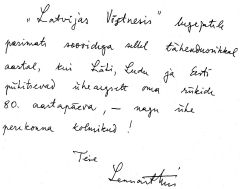 "Latvijas Vēstnesis" lugejatele
parimate soovidega sellel tähendusrikkal
aastal, kui Läti, Leedu ja Eesti
pühitsevad üheaegselt oma riikide
80. aastapäeva, – nagu ühe
perekonna kolmikud!
Teie
Lennart Meri